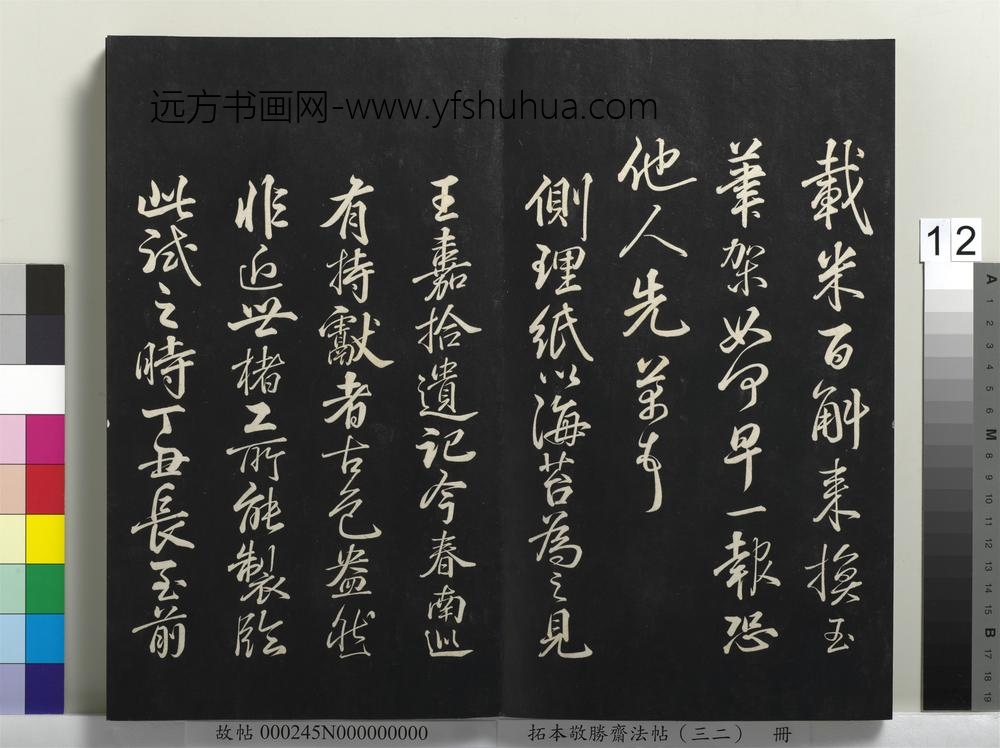 载米百斛来换玉
笔架如何早一报恐
他人先萬
側理紙以海苔為之見
王嘉拾遺記今春南巡
有持獻者古色盎然
非近世楮工所能製臨
此試之時丁丑長至前
远方书画网-www.yfshuhua.com
12
故帖 000245N000000000
拓本敬勝齋法帖（三二） 冊
A 1 2 3 4 5 6 M 8 9 10 11 12 13 14 15 B 17 18 19